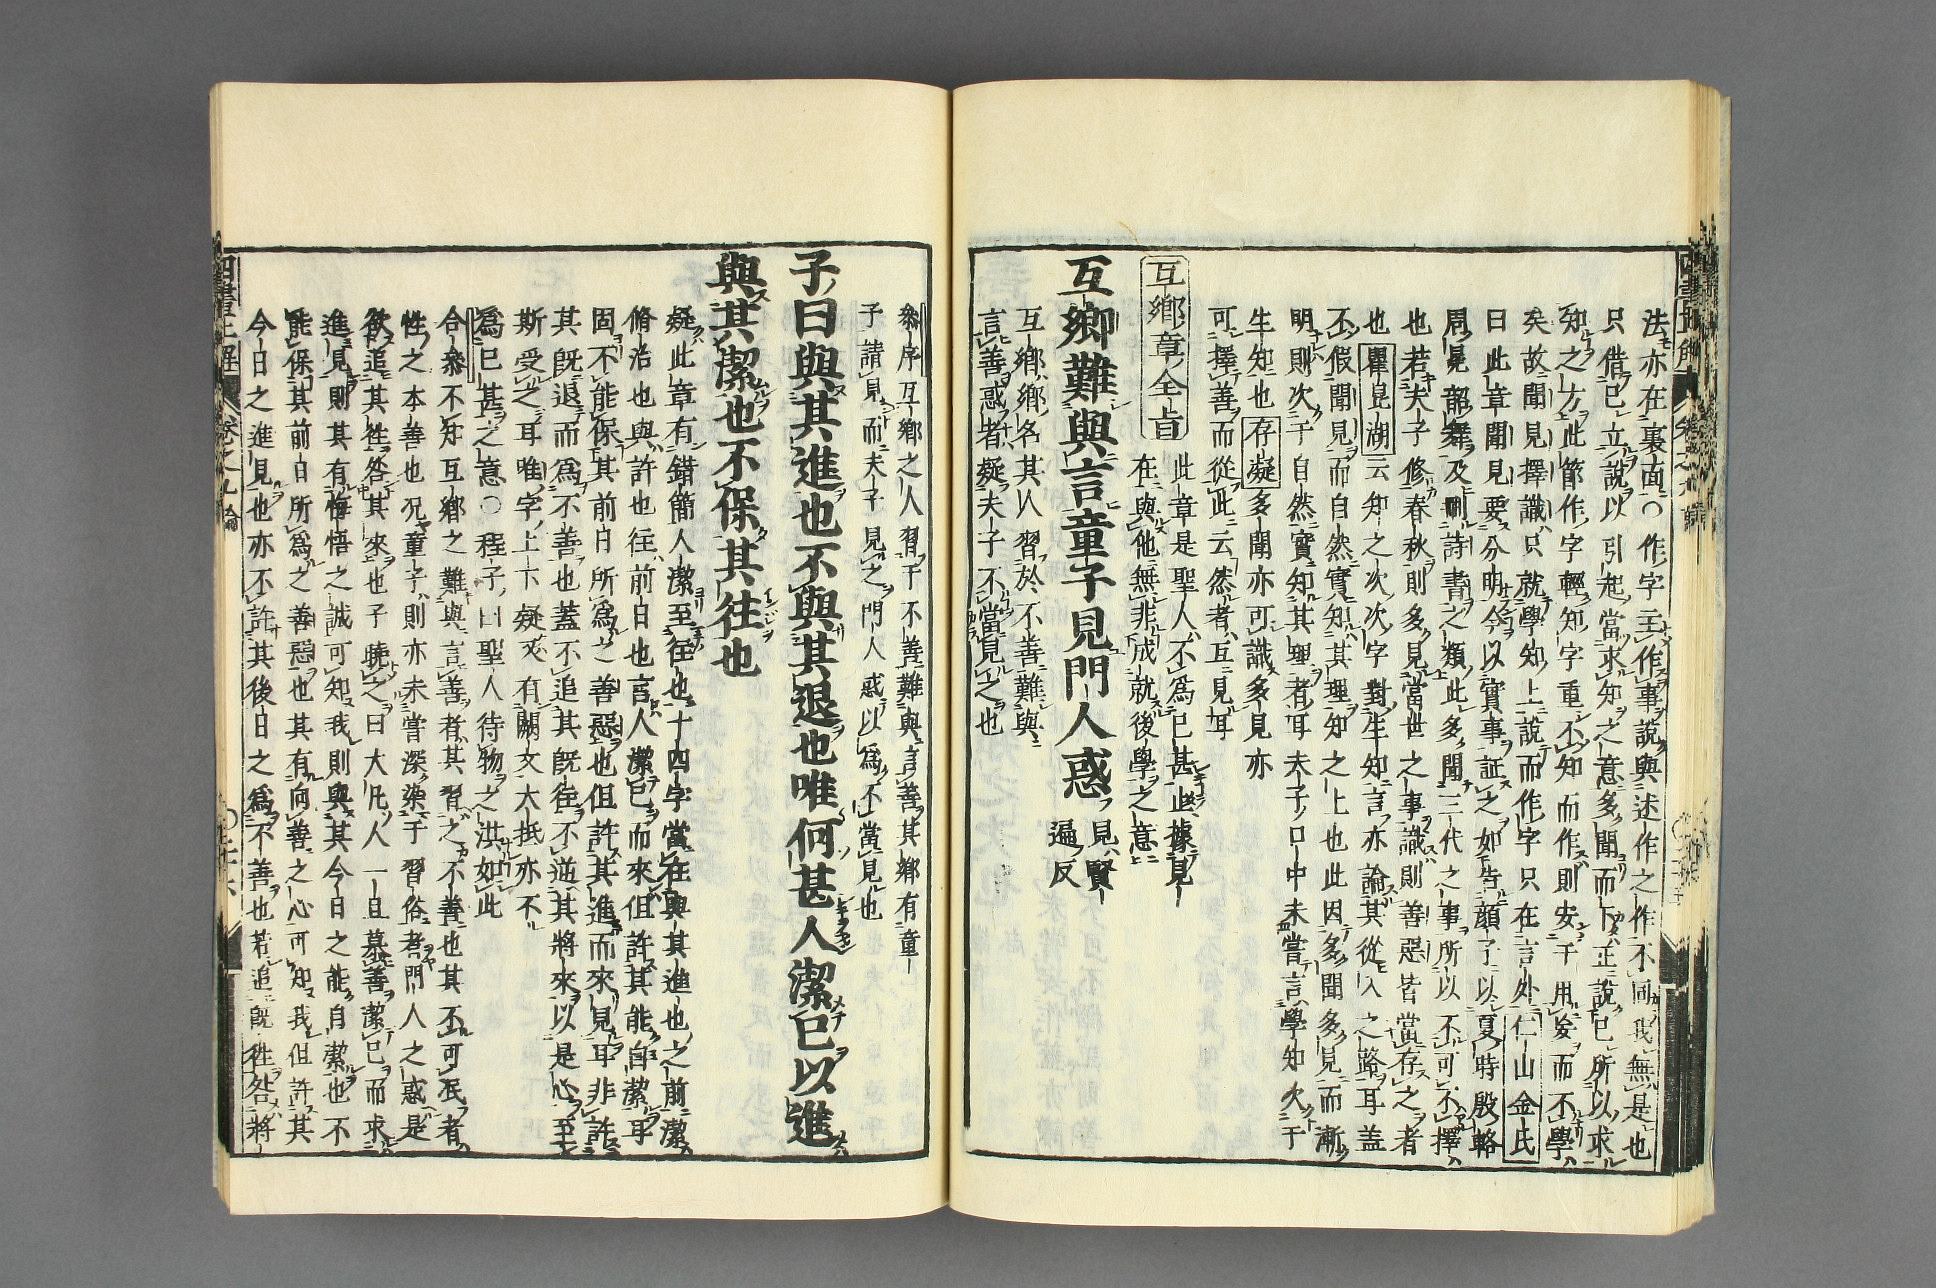 法亦在裏面○作字主作事說與述作之作不同我無是也
只借已立說以引起當求知之意多聞而下正說已所以求
知之方此節作字輕知字重不知而作則安于用妄而不學
矣故聞見擇識只就學知上說而作字只在言外仁山金氏
曰此章聞見要分明今以實事証之如告顏子以夏時殷輅
周冕韶舞及刪詩書之類此多聞三代之事所以不可不擇
也若夫子修春秋則多見當世之事識則善惡皆當存之者
也瞿昆湖云知之次次字對生知言亦論其從入之路耳蓋
不假聞見而自然實知其理知之上也此因多聞多見而漸
明則次于自然實知其理者耳夫子口中未嘗言學知次于
生知也存疑多聞亦可識多見亦
可擇善而從此云然者互見耳
互鄉章全旨
此章是聖人不為已甚止據見
在與他無非成就後學之意
互鄉難與言童子見門人惑
見賢
遍反
互鄉鄉名其人習於不善難與
言善惑者疑夫子不當見之也
參序互鄉之人習于不善難與言善其鄉有童
子請見而夫子見之門人惑以為不當見也
子曰與其進也不與其退也唯何甚人潔已以進
與其潔也不保其往也
疑此章有錯簡人潔至往也十四字當在與其進也之前潔
脩治也與許也往前日也言人潔已而來但許其能自潔耳
固不能保其前日所為之善惡也但許其進而來見耳非許
其既退而為不善也蓋不追其既往不逆其將來以是心至
斯受之耳唯字上下疑又有闕文大抵亦不
為已甚之意○程子曰聖人待物之洪如此
合參不知互鄉之難與言善者其習之不善也其不可泯者
性之本善也況童子則亦未嘗深染于習俗者門人之惑是
欲追其往咎其來也子曉之曰大凡人一旦慕善潔已而求
進見則其有悔悟之誠可知我則與其今日之能自潔也不
能保其前日所為之善惡也其有向善之心可知我但許其
今日之進見也亦不許其後日之為不善也若追既往咎將